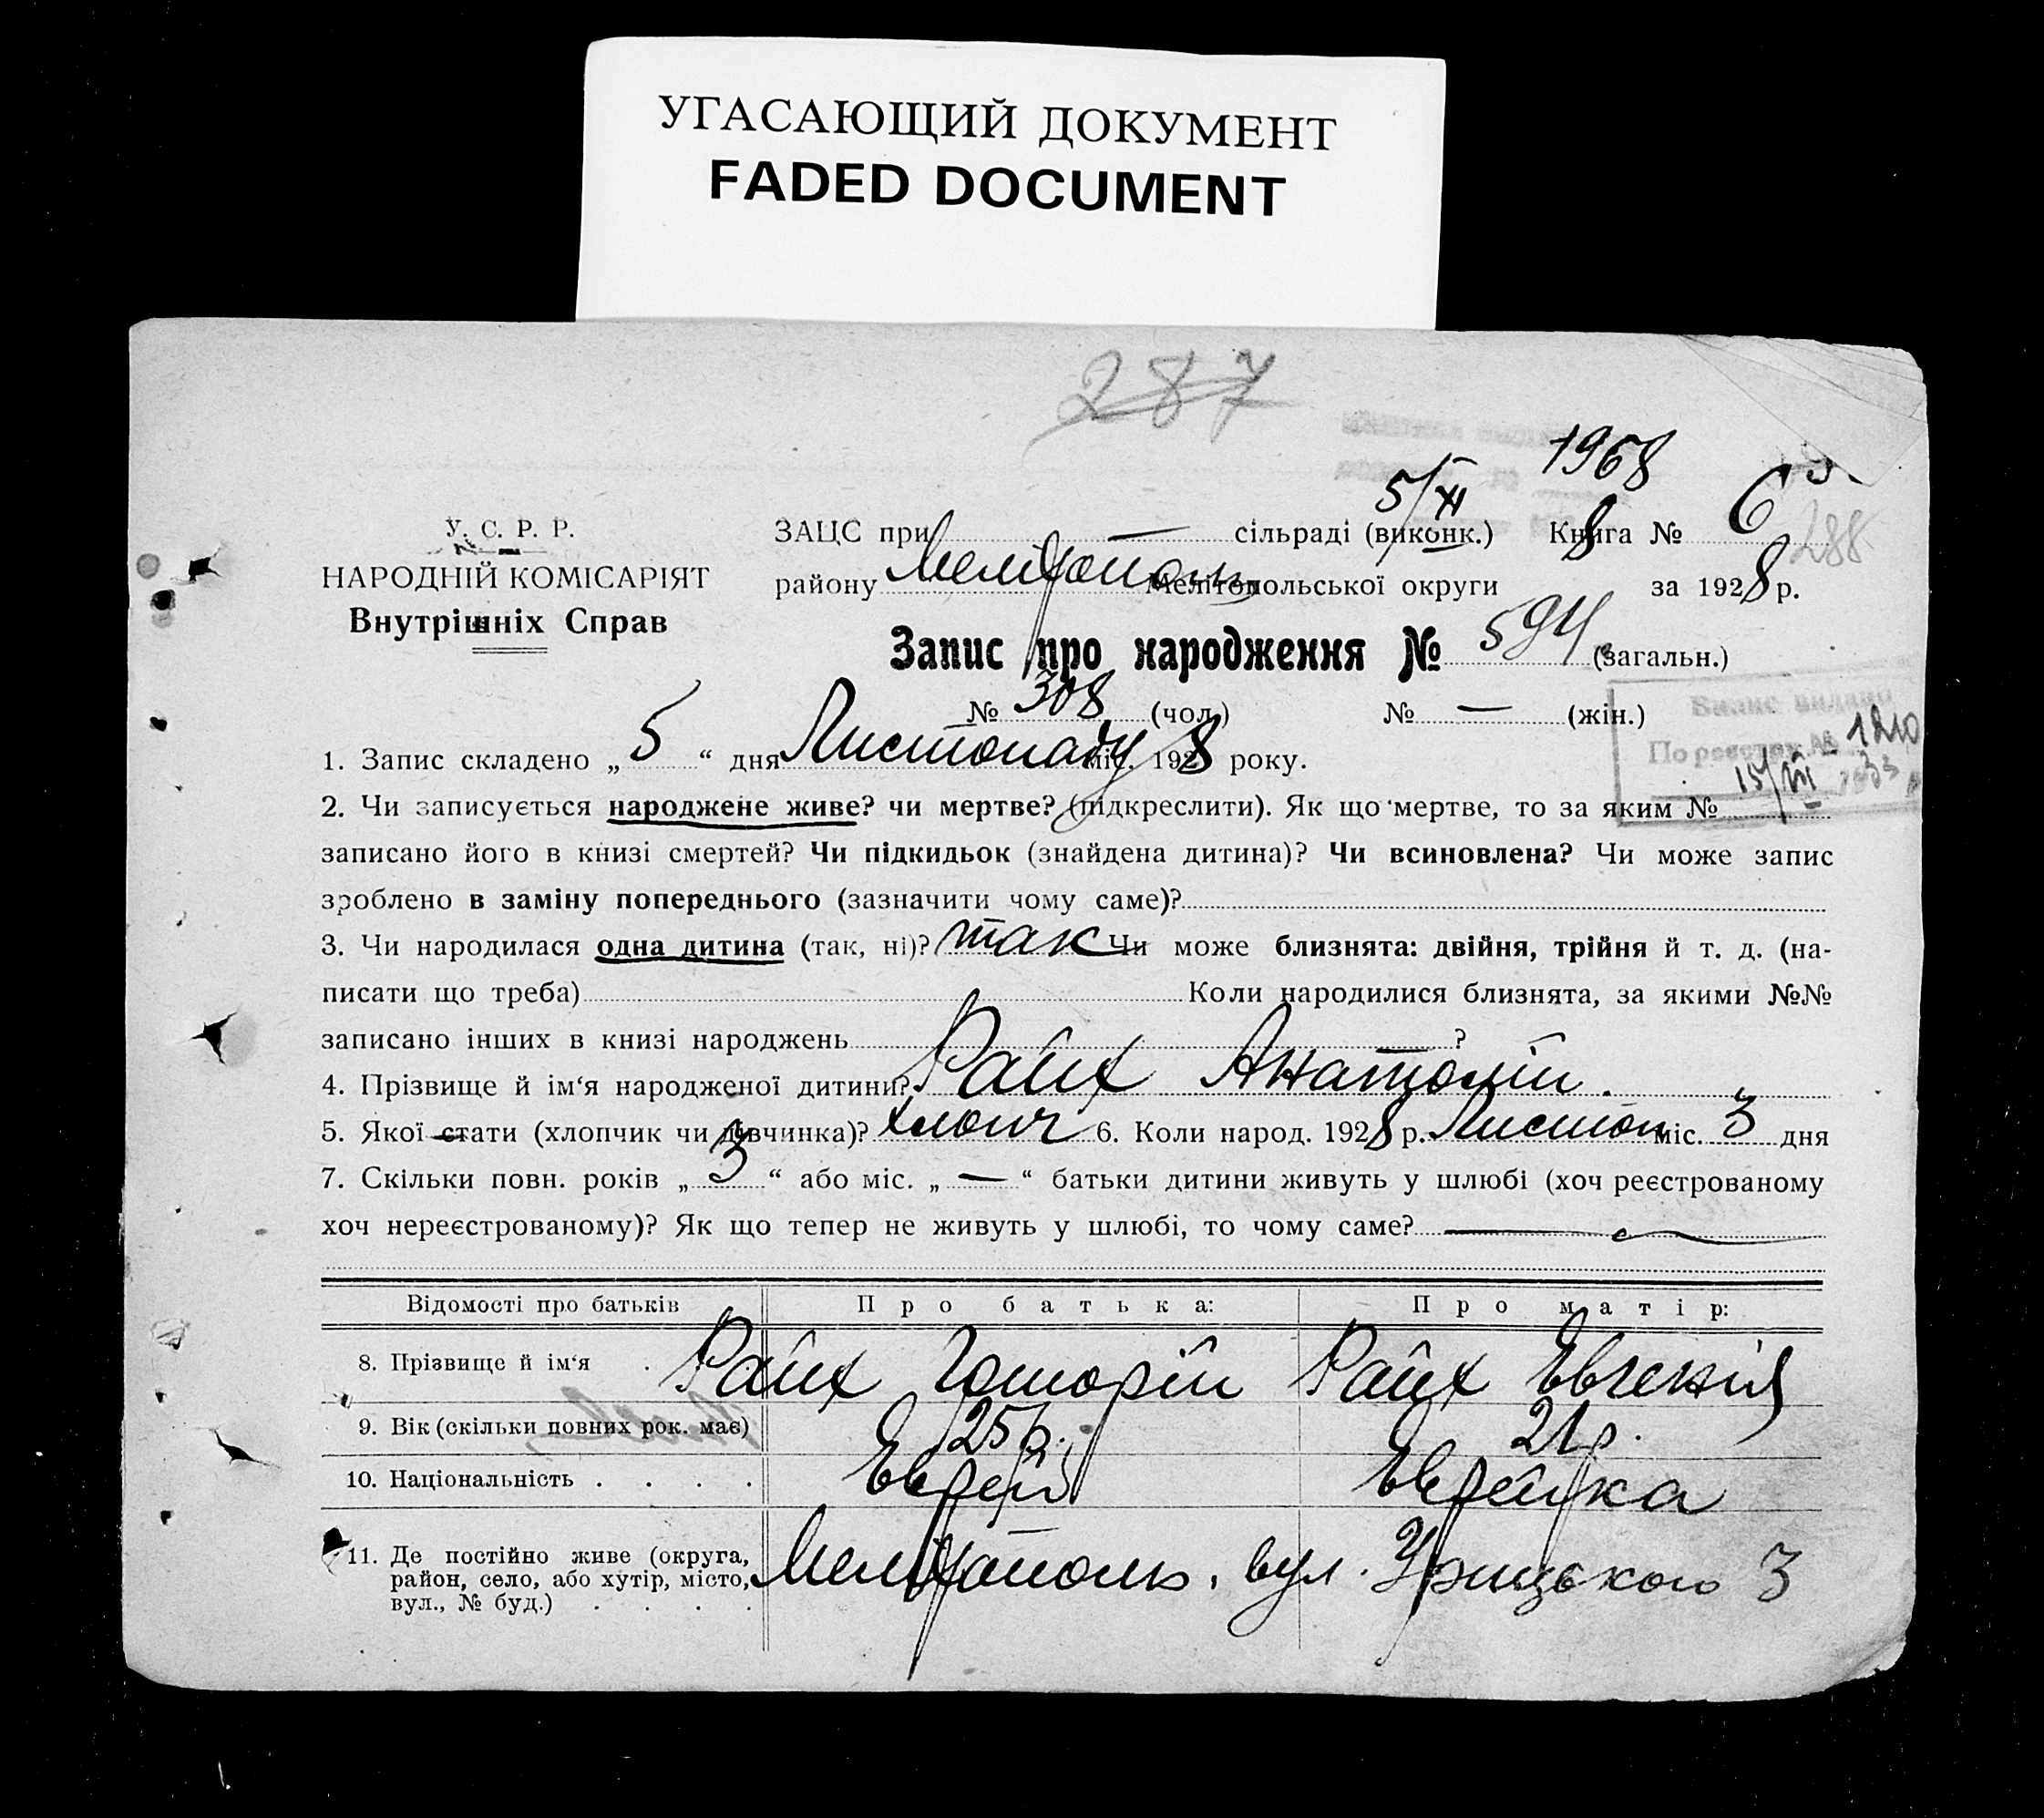 УГАСАЮЩИЙ ДОКУМЕНТ
FADED DOCUMENT
287
1968
5/XI
У. С. Р. Р.
НАРОДНІЙ КОМІСАРІЯТ
Внутрішніх Справ
ЗАЦС при сільраді (виконк.) Книга № 6
288
району Мелітополь Мелітопольської округи за 1928 р.
Запис про народження № 594 (загальн.)
№ 308 (чол.) № — (жін.)
По реестру № 1210
15/VII 1933
1. Запис складено „ 5 “ дня Листопаду міс. 1928 року.
2. Чи записується народжене живе? чи мертве? (підкреслити). Як що мертве, то за яким №
записано його в книзі смертей? Чи підкидьок (знайдена дитина)? Чи всиновлена? Чи може запис
зроблено в заміну попереднього (зазначити чому саме)?
3. Чи народилася одна дитина (так, ні)? так Чи може близнята: двійня, трійня й т. д. (на-
писати що треба) Коли народилися близнята, за якими №№
записано інших в книзі народжень ?
4. Прізвище й ім‘я народженої дитини? Райх Анатолій.
5. Якої стати (хлопчик чи дівчинка)? хлопч 6. Коли народ. 1928 р. Листоп міс. 3 дня
7. Скільки повн. років „ 3 “ або міс. „ — “ батьки дитини живуть у шлюбі (хоч реєстрованому
хоч нереєстрованому)? Як що тепер не живуть у шлюбі, то чому саме?
Відомості про батьків Про батька: Про матір:
8. Прізвище й ім‘я . Райх Григорій Райх Евгенія
9. Вік (скільки повних рок. має) 25 р. 21 р.
10. Національність . . . . Еврей Еврейка
11. Де постійно живе (округа,
район, село, або хутір, місто,
вул., № буд.) . . . .
Мелітополь, вул. Урицького 3